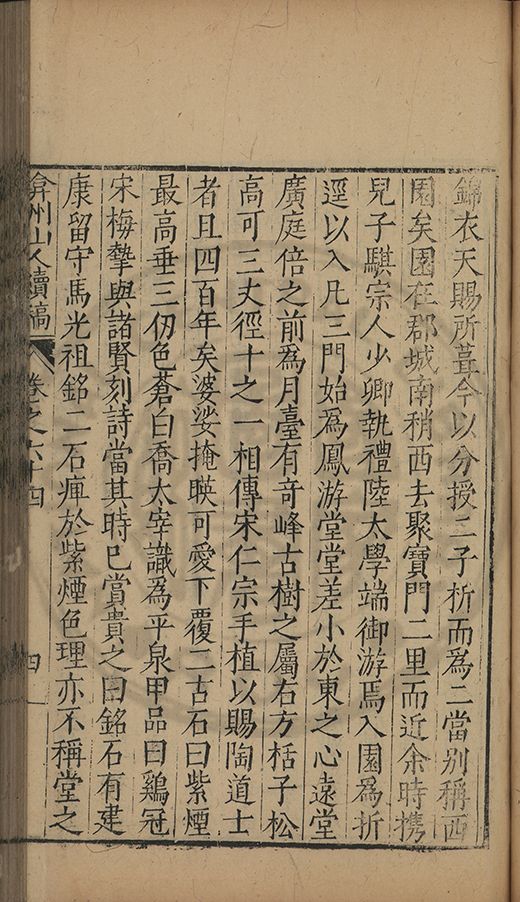 錦衣天賜所葺今以分授二子析而爲二當別稱西
園矣園在郡城南稍西去聚寶門二里而近余時攜
兒子騏宗人少卿執禮陸太學端御游焉入園爲折
逕以入凡三門始爲鳳游堂堂差小於東之心遠堂
廣庭倍之前爲月臺有奇峰古樹之屬右方栝子松
高可三丈徑十之一相傳宋仁宗手植以賜陶道士
者且四百年矣婆娑掩映可愛下覆二古石曰紫煙
最高垂三仞色蒼白喬太宰識爲平泉甲品曰鷄冠
宋梅摯與諸賢刻詩當其時已賞貴之曰銘石有建
康留守馬光祖銘二石痺於紫煙色理亦不稱堂之
弇州山人續稿 卷之六十四 四